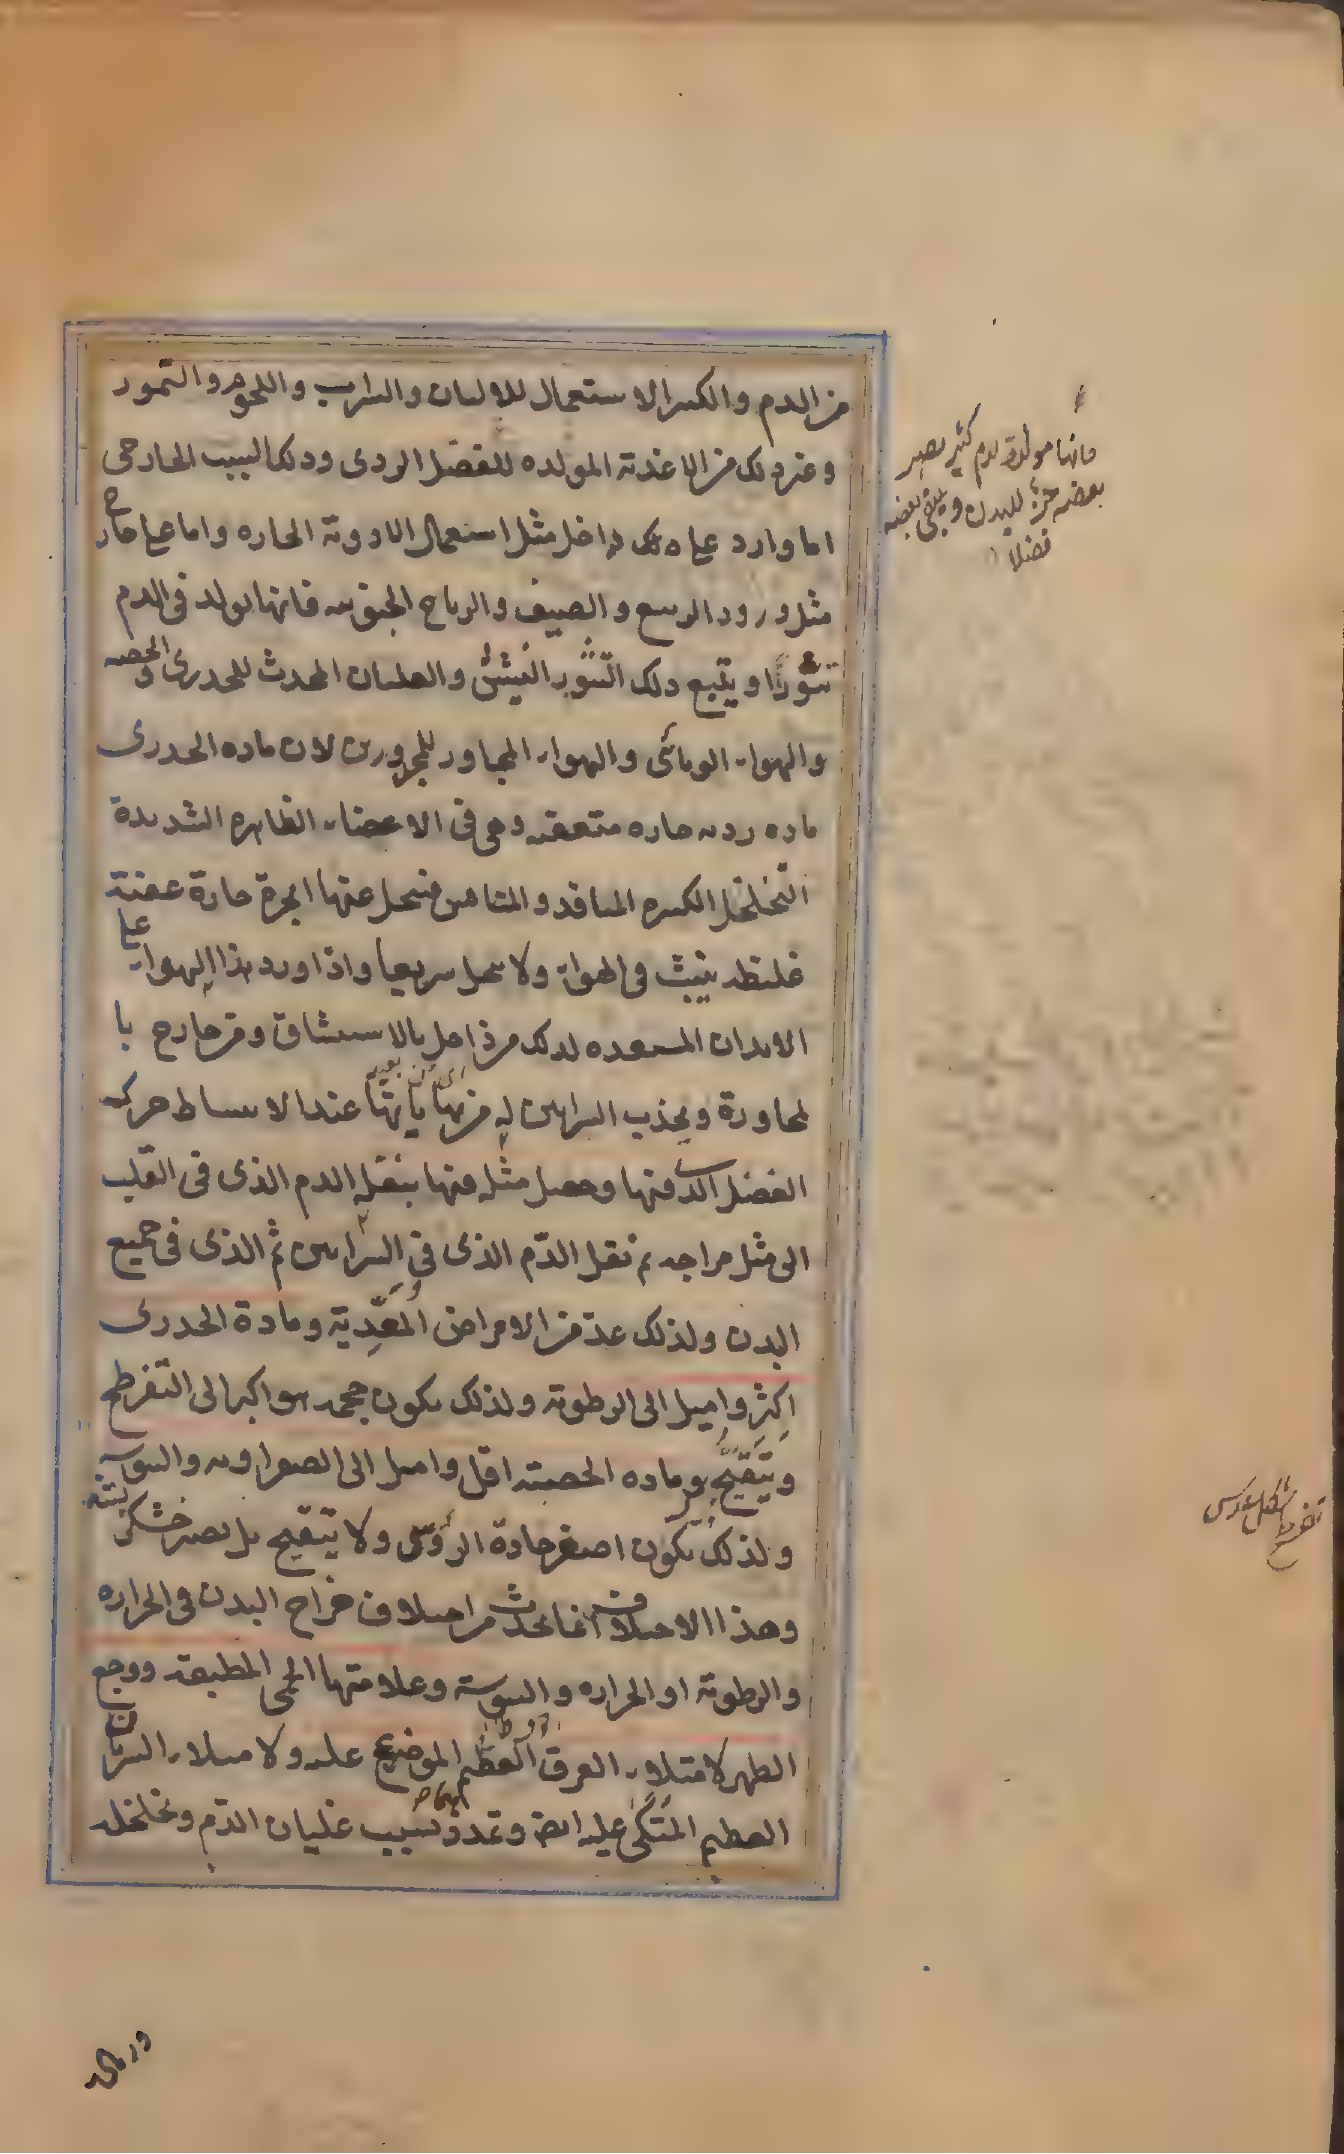 من الدم والكثير الاستعمال للالبان والشراب واللحوم والتمور
وغير ذلك من الاغذية المولده للفضل الردى وذلك السبب الخارجى
اما وارد على من داخل مثل استعمال الادوية الحاره واما من خارج
مثل ورود الربيع والصيف والرياح الجنوبيه فانها تولد فى الدم
تثورا ويتبع ذلك التثور النشيش والغليان المحدث للجدرى والحصبه
والهواء الوبائى والهواء المجاور للمجدورين لان ماده الجدرى
ماده رديه حاره متعفنه وهى فى الاعضاء الظاهره الشديدة
التخلخل الكثيره المنافذ والمسام فيتحلل عنها ابخرة حارة عفنة
غليظه ينبث فى الهواء ولا يتحلل سريعا واذا ورد هذا الهواء على
الابدان المستعده لذلك من داخل بالاستنشاق ومن خارج با
لمجاورة وبجذب الشرايين له من نهاياتها عند الانبساط حرك
الفضل الذى فيها وحصل مثله فيها ينقل الدم الذى فى القلب
الى مثل مزاجه ثم نقل الدم الذى فى الشرايين ثم الذى فى جميع
البدن ولذلك عد من الامراض المعدية ومادة الجدرى
اكثر واميل الى الرطوبه ولذلك يكون حجمه اكبر الى التفرطح
ويتقيح وماده الحصبة اقل واميل الى الصفراويه واليبوسه
ولذلك تكون اصغر حادة الرؤس ولا يتقيح بل يصير خشكريشه
وهذا الاختلاف انما يحدث من اختلاف مزاج البدن فى الحراره
والرطوبة او الحراره واليبوسة وعلامتها الحمى المطبقه ووجع
الظهر لامتلاء العرق العظيم الموضوع عليه ولامتلاء الشريان
العظيم المتكئ عليه ايضا وتمدد بسبب غليان الدم وتخلخله
فانها مولدة لدم كثير يصير
بعضه جزء للبدن ويبقى بعضه
فضلا
تفرطح شكل عدس